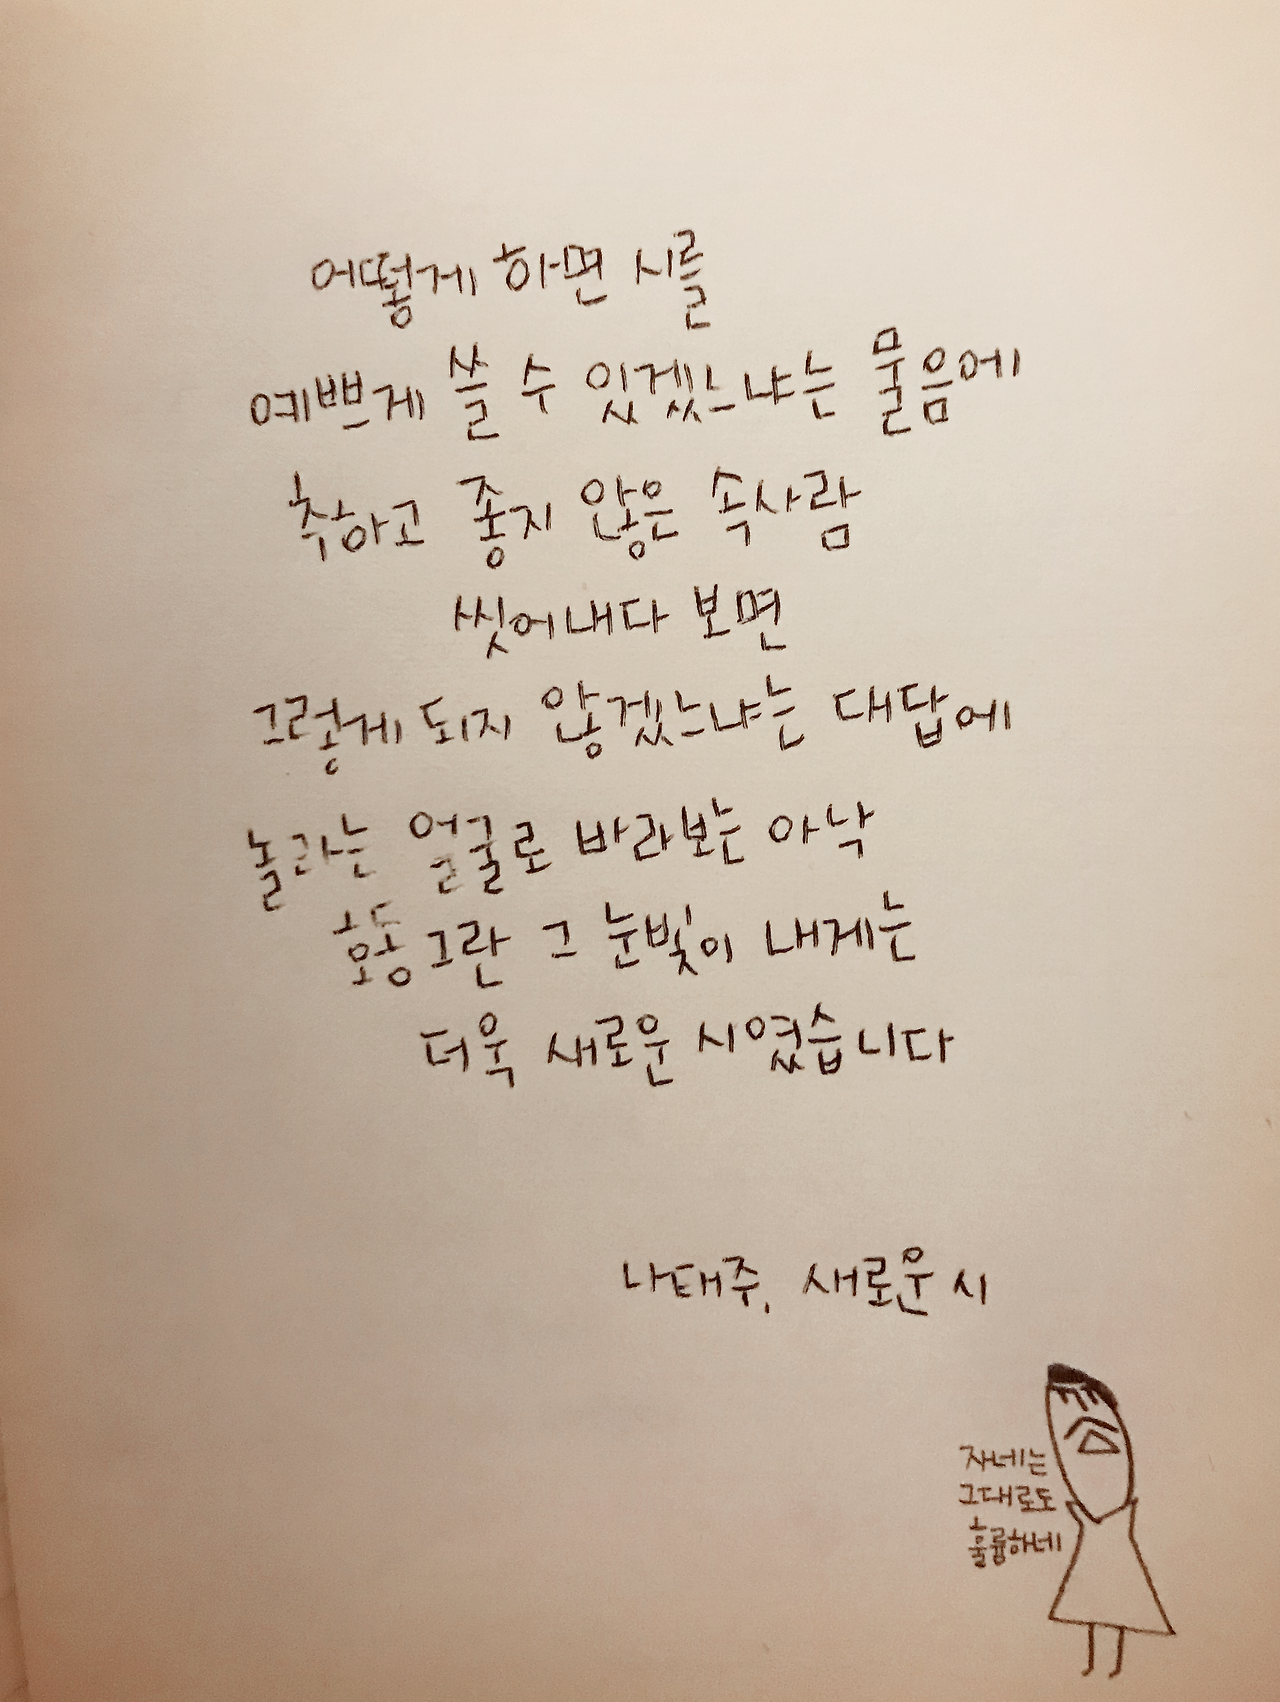 어떻게 하면 시를
예쁘게 쓸 수 있겠느냐는 물음에
추하고 좋지 않은 속사람
씻어내다 보면
그렇게 되지 않겠느냐는 대답에
놀라는 얼굴로 바라보는 아낙
휘둥그란 그 눈빛이 내게는
더욱 새로운 시였습니다
나태주, 새로운 시
자네는
그대로도
훌륭하네